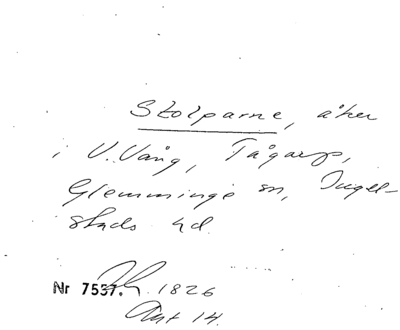 Stolparne, åker
i V. Vång, Tågarp,
Glemminge sn, Ingel-
stads hd.
Nr 7557. 1826
Akt 14.